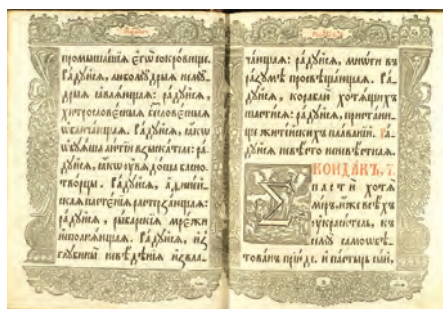 промышлѧ́нїѧ є҆гѡ̀ сокро́вище.
Ра́дꙋйсѧ, любомꙋ́дрыѧ немꙋ́-
дрыѧ ꙗ҆влѧ́ющаѧ: ра́дꙋйсѧ,
хитрослове́сныѧ безслове́сныѧ
ѡ҆блича́ющаѧ. Ра́дꙋйсѧ, ꙗ҆́кѡ
ра́дꙋйсѧ, ꙗ҆́кѡ
тво́рцы. Ра́дꙋйсѧ, а҆ѳине́й-
скаѧ плете́нїѧ растерза́ющаѧ:
ра́дꙋйсѧ, рыба́рскїѧ мре́жи
и҆сполнѧ́ющаѧ. Ра́дꙋйсѧ, и҆з̾
глꙋбины̀ невѣ́дѣнїѧ и҆звла-
ча́ющаѧ: ра́дꙋйсѧ, мно́ги въ
ра́зꙋмѣ просвѣща́ющаѧ. Ра́-
дꙋйсѧ, кораблю̀ хотѧ́щихъ
спасти́сѧ: ра́дꙋйсѧ, приста́ни-
ще жите́йскихъ пла́ванїй. Ра́-
дꙋйсѧ невѣ́сто неневѣ́стнаѧ.
КОНДА́КЪ, І҃.
Спастѝ хотѧ̀
мі́ръ, и҆́же всѣ́хъ
ᲂу҆краси́тель, къ
немꙋ̀ самоѡбѣ-
това́нъ прїи́де. и҆ па́стырь сы́й,